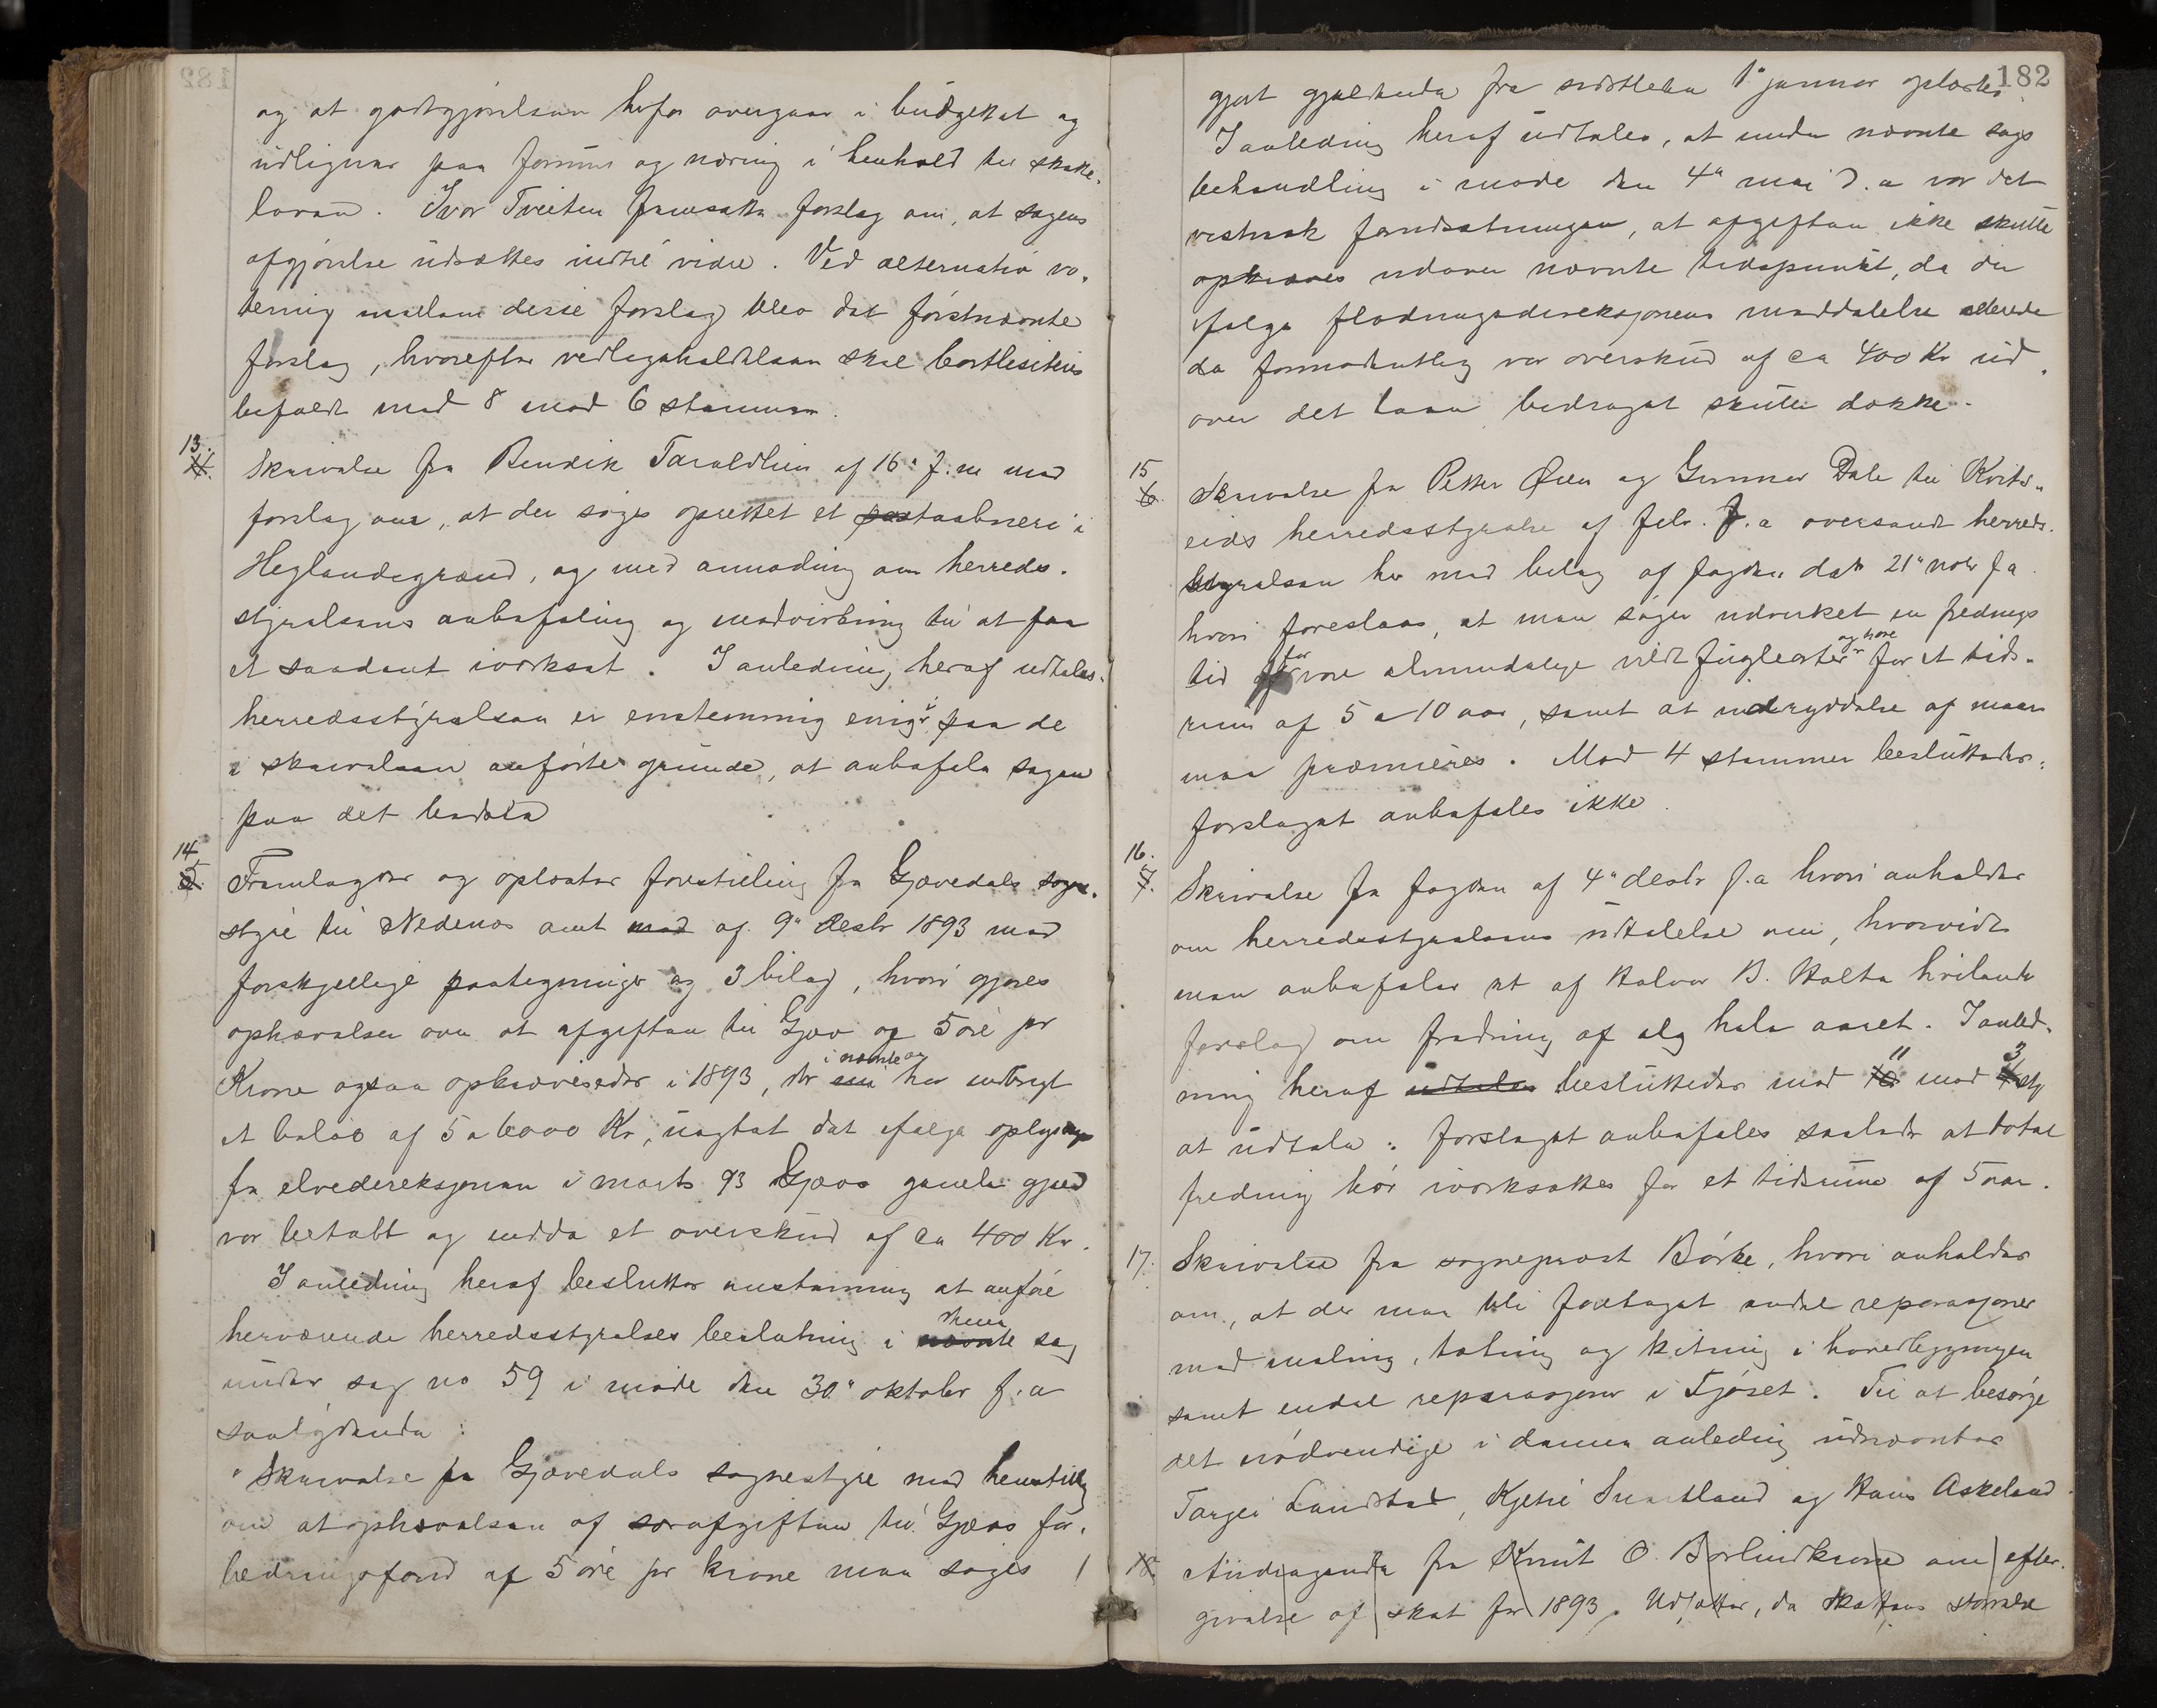 og at godtgjørelsen herfor overgaar i budgettet og
udlignes paa formue og næring i henhold til skatte-
loven. Ivar Tveiten fremsatte forslag om, at sagens
afgjørelse udsættes indtil videre. Ved alternativ vo-
tering mellem disse forslag blev det førstnævnte
forslag, hvorefter vedligeholdelsen skal bortliciteres
befaldt med 8 mod 6 stemmer.
13.
Skrivelse fra Bendik Taraldlien af 16de f.m med
forslag om, at der søges oprettet et postaabneri i
Heglandsgrænd, og med anmodning om herreds-
styrelsens anbefaling og medvirkning til at faa
et saadant iværksat. I anledning heraf udtales:
herredsstyrelsen er enstemmig enig i paa de
i skrivelsen anførte grunde, at anbefale sagen
paa det bedste
14.
5.
Fremlagdes og oplæstes forestilling fra Gjøvedals sogne-
styre til Nedenæs amt med af 9de desbr 1893 med
forskjellige paategninger og 3 bilag, hvori gjøres
ophævelser over at afgiften til Gjøv og 5 øre pr
Krone ogsaa opkrævedes i 1893, der i nævnte aar har indbragt
et beløb af 5 a 6000 Kr, uagtet det ifølge oplysnings
fra elvedireksjonen i marts 93 Gjøvs gamle gjæld
var betalt og endda et overskud af ca 400 Kr.
I anledning heraf besluttes enstemmig at anføre
herværende herredsstyrelses beslutning i denne sag
under sag no 59 i møde den 30te oktober f.a
saalydende:
"Skrivelse fra Gjøvedals sognestyre med henstilling
om at ophævelsen af særafgiften til Gjøvs for-
bedringsfond af 5 øre pr krone maa søges
182
gjort gjældende fra sidstleden 1ste januar oplæstes
I anledning heraf udtales, at under nævnte sags
behandling i møde den 4de mai d.a var det
vistnok forudsætningen, at afgiften ikke skulle
opkræves udover nævnte tidspunkt, da der
ifølge fløtningsdireksjonens meddelelse allerede
da formodentlig var overskud af ca 400 Kr ud-
over det laan bidraget skulle dække.
15
6.
Skrivelse fra Petter Øien og Gunnar Dale til Kvits-
eids herredsstyrelse af febr. f.a oversendt herreds-
styrelsen her med bilag af fogden dat 21de novbr f.a
hvori foreslaaes, at man søger udvirket en frednings
tid for vore almindelige vildtfuglearter og hare for et tids-
rum af 5 a 10 aar, samt at udryddelse af maar
maa præmieres. Mod 4 stemmer besluttedes:
forslaget anbefales ikke.
16.
7.
Skrivelse fra fogden af 4de desbr f.a hvori anholdes
om herredsstyrelsens udtalelse om, hvorvidt
man anbefaler et af Halvor B. Holte hvilende
forslag om fredning af elg hele aaret. I anled-
ning heraf udtales besluttedes med 11 mod 3 st
at udtale: Forslaget anbefales saaledes at total
fredning bør iværksættes for et tidsrum af 5 aar.
17.
Skrivelse fra sogneprest Børke, hvori anholdes
om, at der maa bli foretaget endel reparasjoner
med maling, tætning og kitning i hovedbygningen
samt endel reparasjoner i Fjøset. Til at besørge
det nødvendige i denne anledning udnævntes
Targei Landstad, Kjetil Svartland og Hans Askeland.
18.
Andragende fra Knut O. om efter-
givelse af skat for 1893. Udsættes, da skattens størrelse